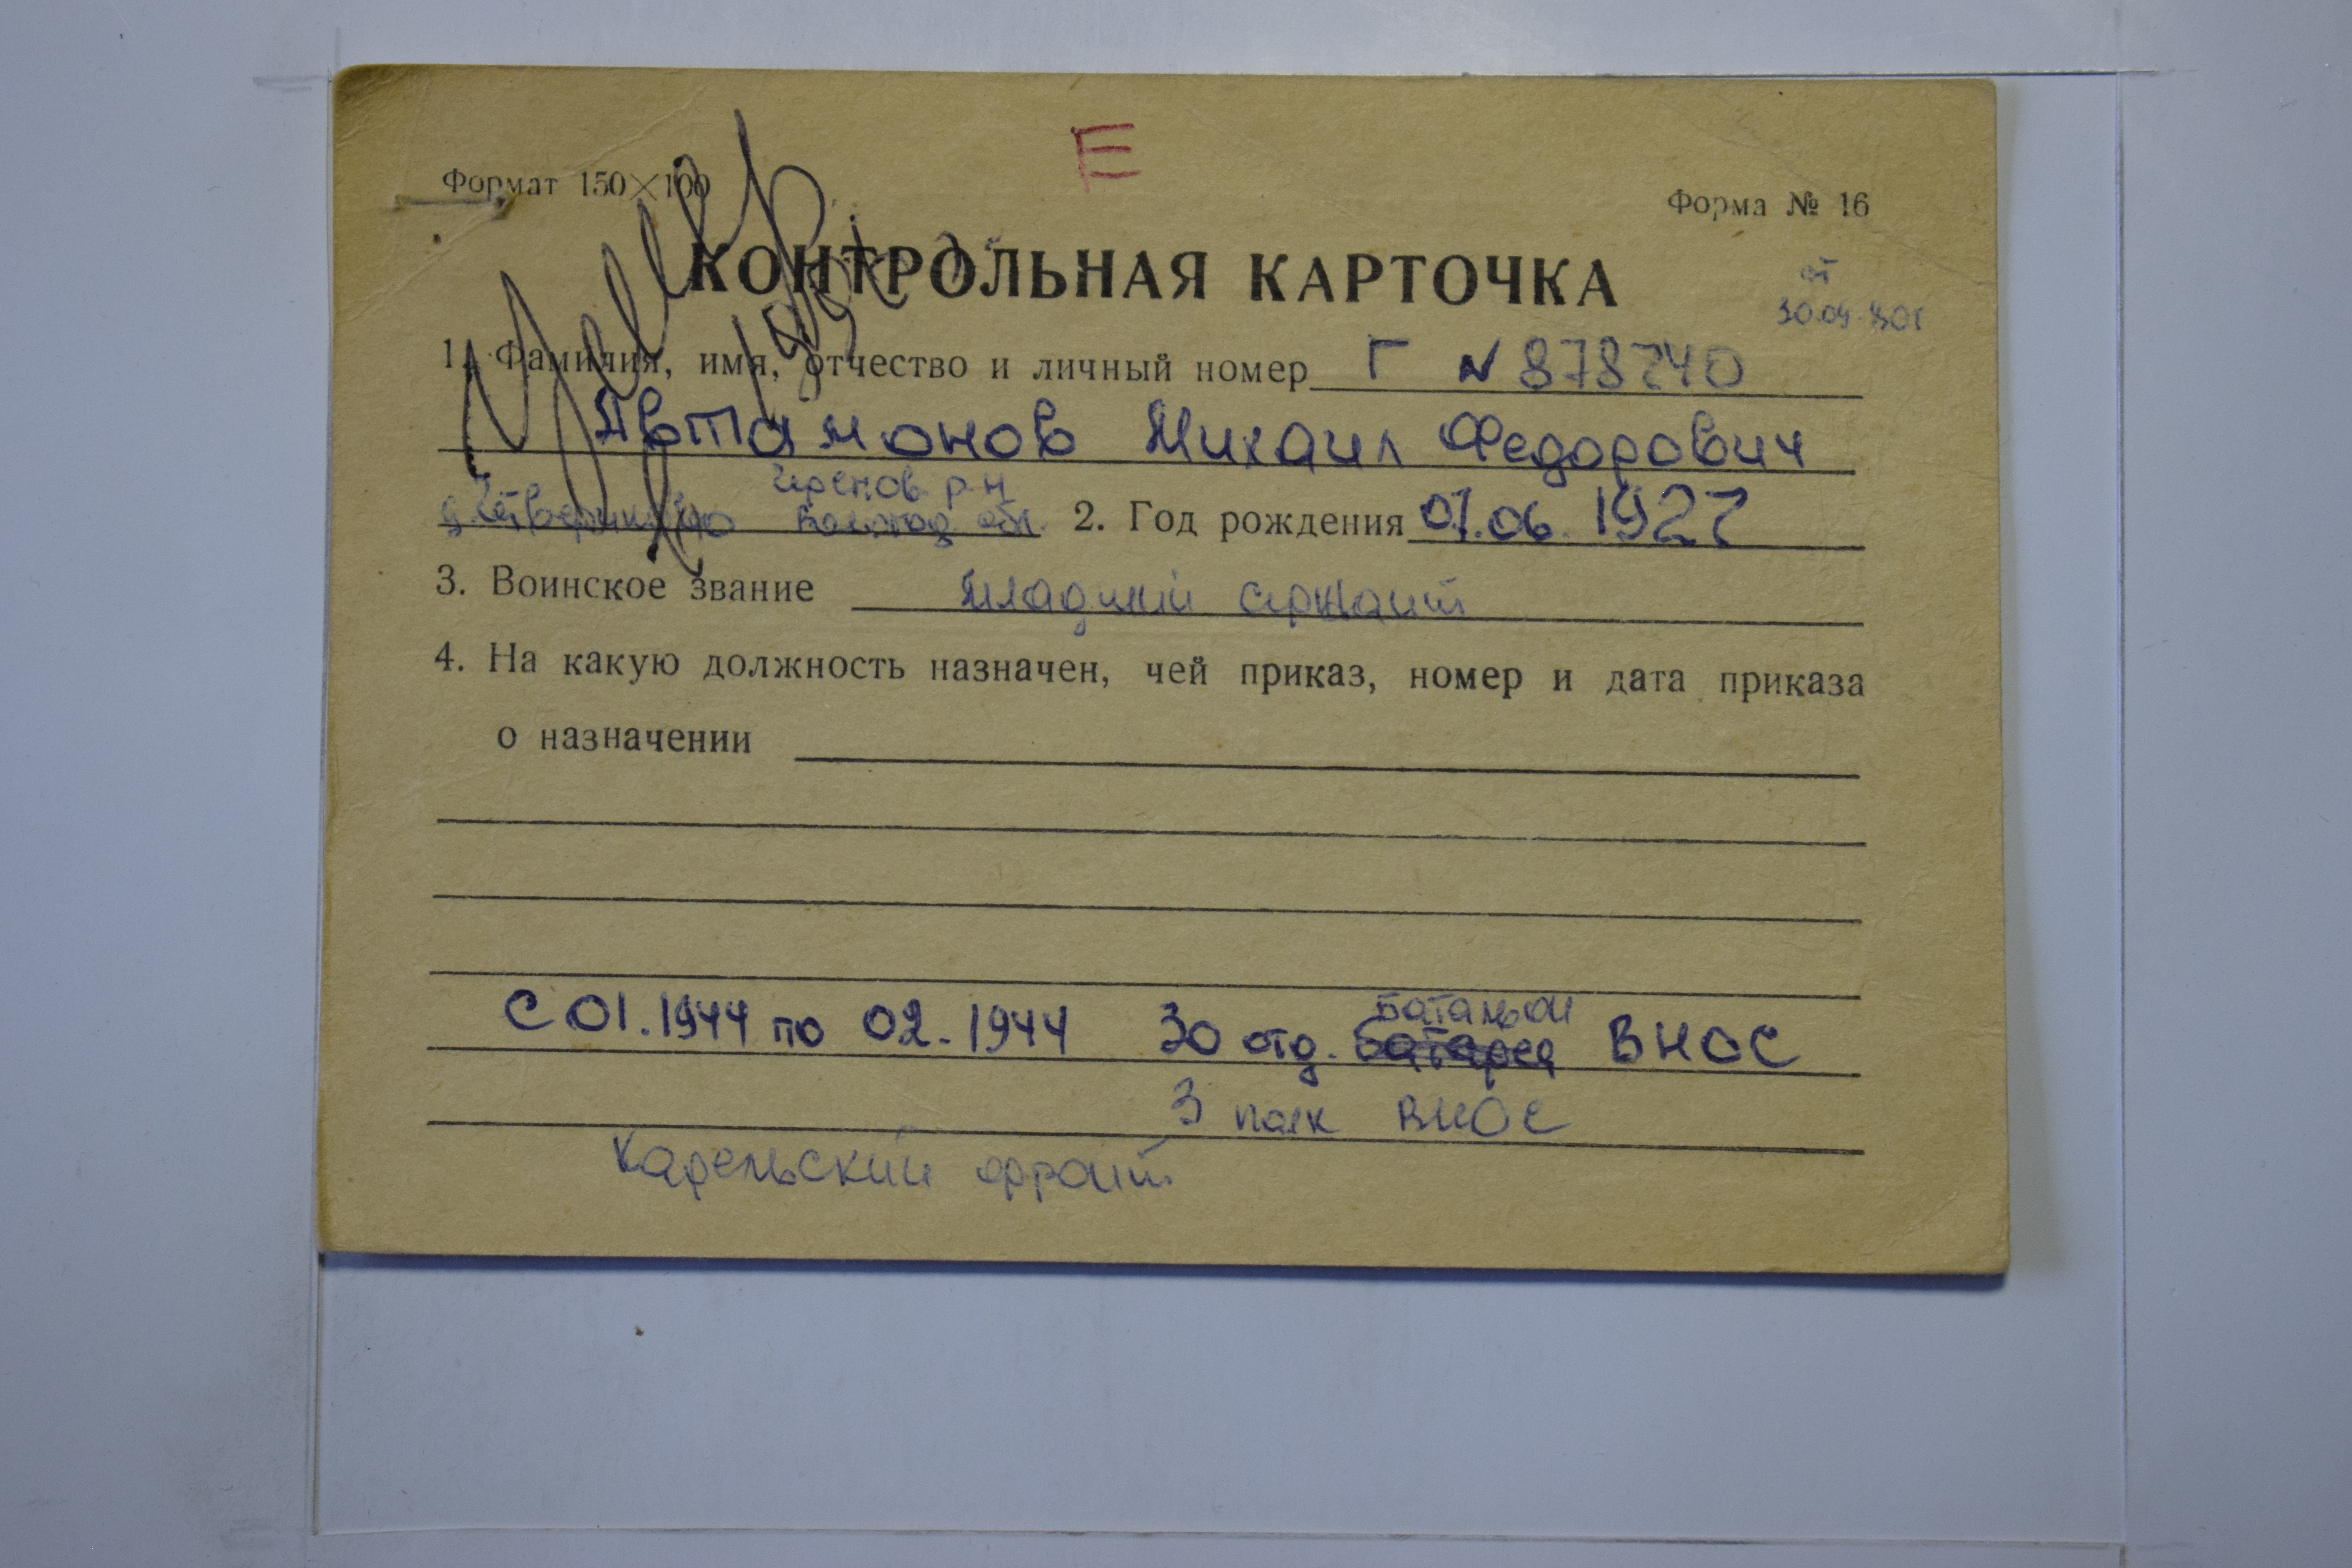 Е
Формат 150×100
Форма № 16
КОНТРОЛЬНАЯ КАРТОЧКА
от
30.09.80г
1. Фамилия, имя, отчество и личный номер Г № 878740
Автамонов Михаил Федорович
р-н
обл. 2. Год рождения 07.06.1927
3. Воинское звание младший сержант
4. На какую должность назначен, чей приказ, номер и дата приказа
о назначении
батальон
С 01.1944 по 02.1944 30 отд. батарея ВНОС
3 полк ВНОС
Карельский фронт